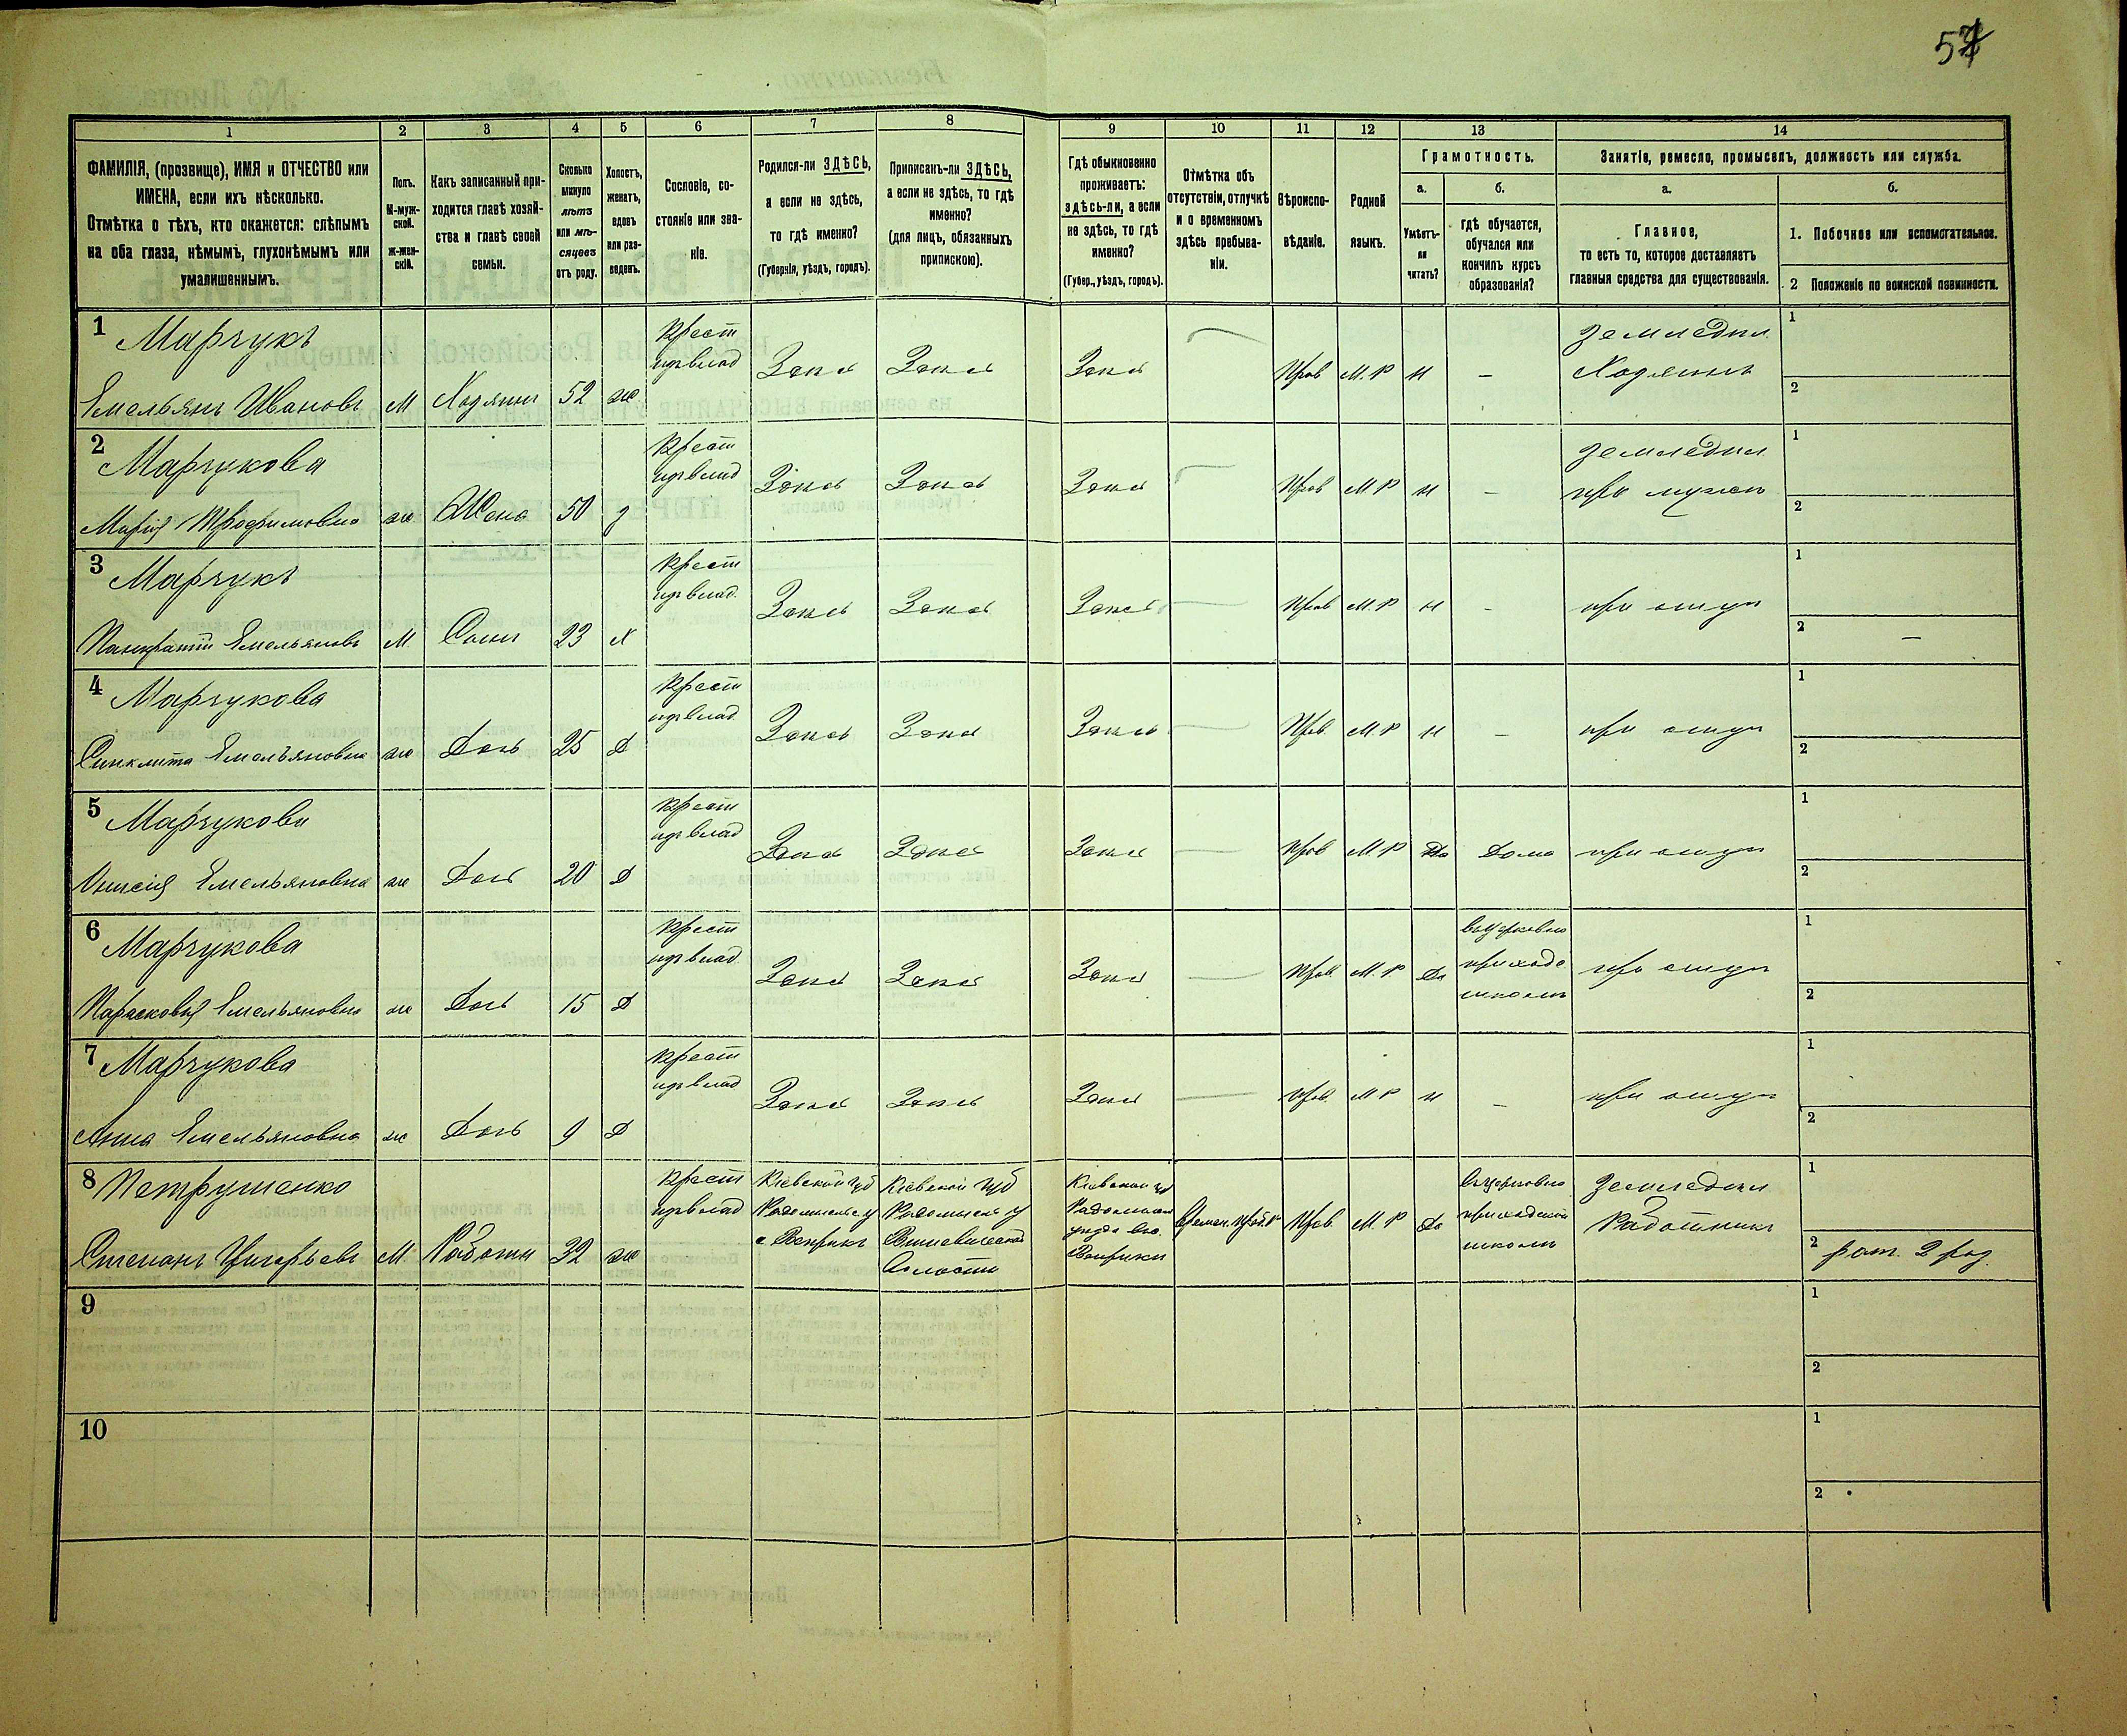 57
1 2 3 4 5 6 7 8 9 10 11 12 13 14
ФАМИЛІЯ, (прозвище), ИМЯ и ОТЧЕСТВО или
ИМЕНА, если ихъ нѣсколько.
Отмѣтка о тѣхъ, кто окажется: слѣпымъ
на оба глаза, нѣмымъ, глухонѣмымъ или
умалишеннымъ.
Полъ.
М-муж-
ской.
Ж-жен-
скій.
Какъ записанный при-
ходится главѣ хозяй-
ства и главѣ своей
семьи.
Сколько
минуло
лѣтъ
или мѣ-
сяцевъ
отъ роду.
Холостъ,
женатъ,
вдовъ
или раз-
веденъ.
Сословіе, со-
стояніе или зва-
ніе.
Родился-ли ЗДѢСЬ,
а если не здѣсь,
то гдѣ именно?
(Губернія, уѣздъ, городъ).
Приписанъ-ли ЗДѢСЬ,
а если не здѣсь, то гдѣ
именно?
(для лицъ, обязанныхъ
припискою).
Гдѣ обыкновенно
проживаетъ:
здѣсь-ли, а если
не здѣсь, то гдѣ
именно?
(Губер., уѣздъ, городъ).
Отмѣтка объ
отсутствіи, отлучкѣ
и о временномъ
здѣсь пребыва-
ніи.
Вѣроиспо-
вѣданіе.
Родной
языкъ.
Грамотность.
а.
Умѣетъ-
ли
читать?
б.
Гдѣ обучается,
обучался или
кончилъ курсъ
образованія?
Занятіе, ремесло, промыселъ, должность или служба.
а.
Главное,
то есть то, которое доставляетъ
главныя средства для существованія.
б.
1. Побочное или вспомогательное.
2 Положеніе по воинской повинности.
1 Марчукъ
Емельянъ Ивановъ М Хозяинъ 52 ж
Крест
изъ влад
Здѣсь Здѣсь Здѣсь — Прав М.Р Н —
Земледѣл.
Хозяинъ
1
2
2 Марчукова
Марія Трофимовна ж Жена 50 з
Крест
изъ влад
Здѣсь Здѣсь Здѣсь — Прав М Р Н —
Земледѣл.
при мужѣ
1
2
3 Марчукъ
Панкратій Емельяновъ М. Сынъ 23 х
Крест
изъ влад.
Здѣсь Здѣсь Здѣсь — Прав М.Р Н - при отцѣ
1
2 —
4 Марчукова
Синклита Емельяновна ж Дочь 25 Д
Крест
изъ влад.
Здѣсь Здѣсь Здѣсь — Прав. М.Р Н — при отцѣ
1
2
5 Марчукова
Анисія Емельяновна ж Дочь 20 Д
Крест
изъ влад
Здѣсь Здѣсь Здѣсь — Прав М.Р Да Дома при отцѣ
1
2
6 Марчукова
Парасковія Емельяновна ж Дочь 15 Д
Крест
изъ влад.
Здѣсь Здѣсь Здѣсь — Прав. М.Р Да
въ церковно
приходс
школѣ
при отцѣ
1
2
7 Марчукова
Анна Емельяновна ж Дочь 9 Д
Крест
изъ влад
Здѣсь Здѣсь Здѣсь — Прав. М Р Н — при отцѣ
1
2
8 Петрушенко
Степанъ М Работн 32 ж
Крест
изъ влад
Кіевской губ
Радомысль у
с Веприкъ
Кіевской губ
Радомысль у
Вышевичской
Волости
Кіевской губ
Радомысл
уѣзда
Веприки
Времен. преб. Прав. М.Р Да
въ церковно
приходской
школѣ
Земледѣл
Работникъ
1
2 рат. 2 раз.
9
1
2
10
1
2